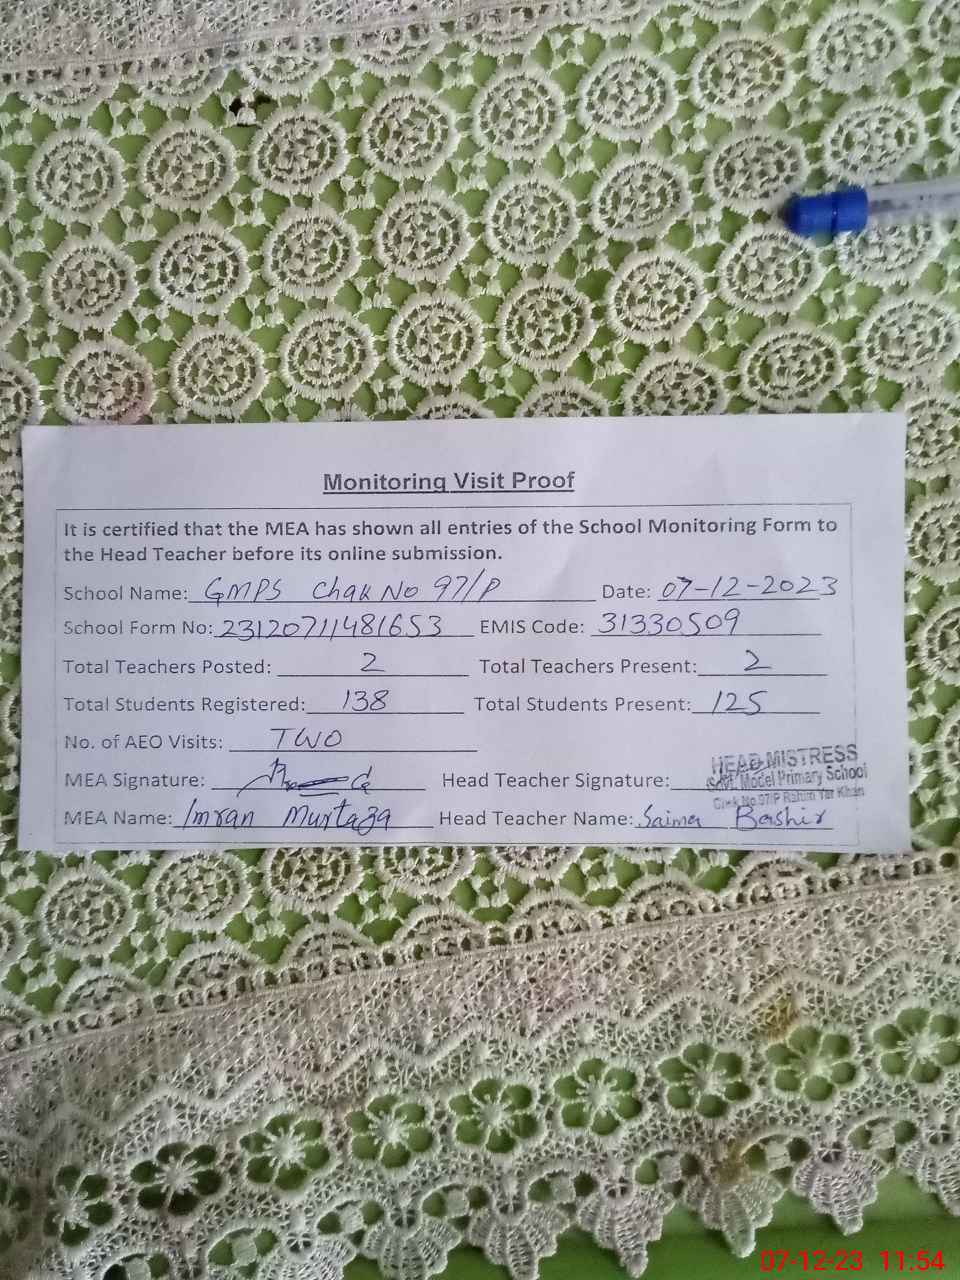 Monitoring Visit Proof
It is certified that the MEA has shown all entries of the School Monitoring Form to
the Head Teacher before its online submission.
School Name: GMPS Chak No 97/P Date: 07-12-2023
School Form No: 23120711481653 EMIS Code: 31330509
Total Teachers Posted: 2 Total Teachers Present: 2
Total Students Registered: 138 Total Students Present: 125
No. of AEO Visits: TWO
HEAD MISTRESS
MEA Signature: Head Teacher Signature: Model Primary School
Chak No.97/P Rahim Yar Khan
MEA Name: Imran Murtaza Head Teacher Name: Saima Bashir
07-12-23 11:54